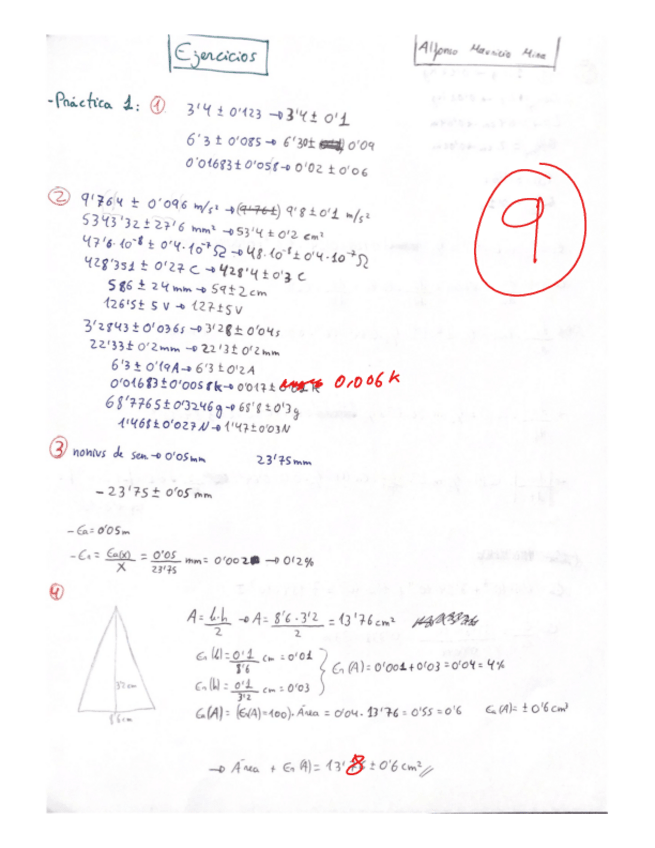 Ejercicios
Alfonso Mauricio Mina
-Práctica 1: ① 3'4 ± 0'123 → 3'4 ± 0'1
6'3 ± 0'085 → 6'30 ± 0'09
0'01683 ± 0'058 → 0'02 ± 0'06
9
② 9'764 ± 0'096 m/s² → (9'764) 9'8 ± 0'1 m/s²
5343'32 ± 27'6 mm² → 53'4 ± 0'2 cm²
47'6·10⁻⁸ ± 0'4·10⁻⁷ Ω → 48·10⁻⁸ ± 0'4·10⁻⁷ Ω
428'351 ± 0'27 C → 428'4 ± 0'3 C
586 ± 24 mm → 59 ± 2 cm
126'5 ± 5 V → 127 ± 5 V
3'2843 ± 0'036 s → 3'28 ± 0'04 s
22'33 ± 0'2 mm → 22'3 ± 0'2 mm
6'3 ± 0'19 A → 6'3 ± 0'2 A
0'01683 ± 0'0058 k → 0'017 ± 0,006 k
68'7765 ± 0'3246 g → 68'8 ± 0'3 g
1'468 ± 0'027 N → 1'47 ± 0'03 N
③ nonius de sen → 0'05 mm 23'75 mm
- 23'75 ± 0'05 mm
- Ea = 0'05 m
- Er = Ea(x) / X = 0'05 / 23'75 mm = 0'002 → 0'2%
④
3'2 cm
8'6 cm
A = b·h / 2 → A = 8'6 · 3'2 / 2 = 13'76 cm²
Er (b) = 0'1 / 8'6 cm = 0'01
Er (h) = 0'1 / 3'2 cm = 0'03
Er (A) = 0'001 + 0'03 = 0'04 = 4%
Ea (A) = (Er(A) ÷ 100) · Área = 0'04 · 13'76 = 0'55 = 0'6 Ea (A) = ± 0'6 cm²
→ Área + Er (A) = 13'8 ± 0'6 cm²